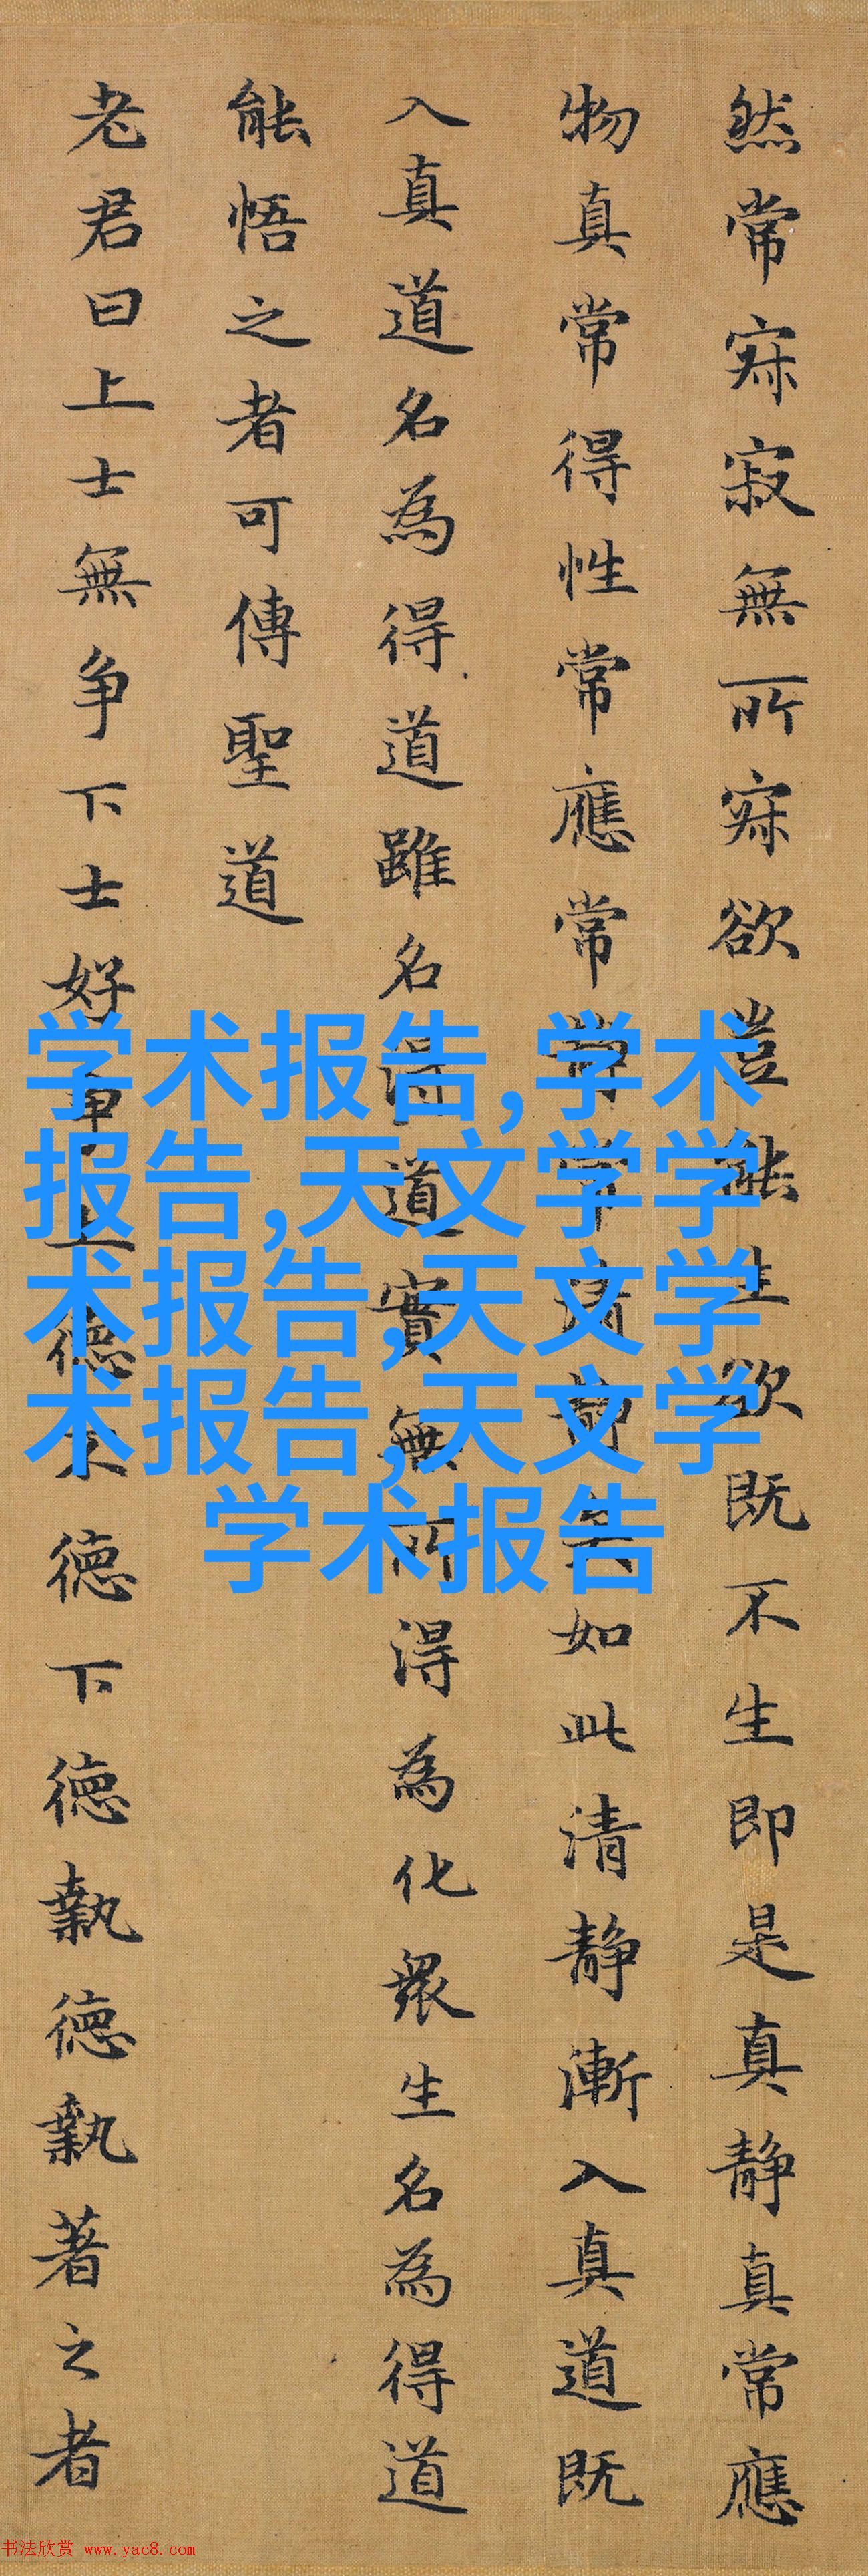 然常寂寂無所寂欲豈能生欲既不生即是真靜真常應
物真常得性常應常常清靜矣如此清靜漸入真道既
入真道名為得道雖名得道實無所得為化衆生名為得道
能悟之者可傳聖道
老君曰上士無争下士好争上德不德下德執德執著之者
学术报告,学术
报告,天文学学
术报告,天文学
术报告,天文学
学术报告
书法欣赏 www.yac8.com